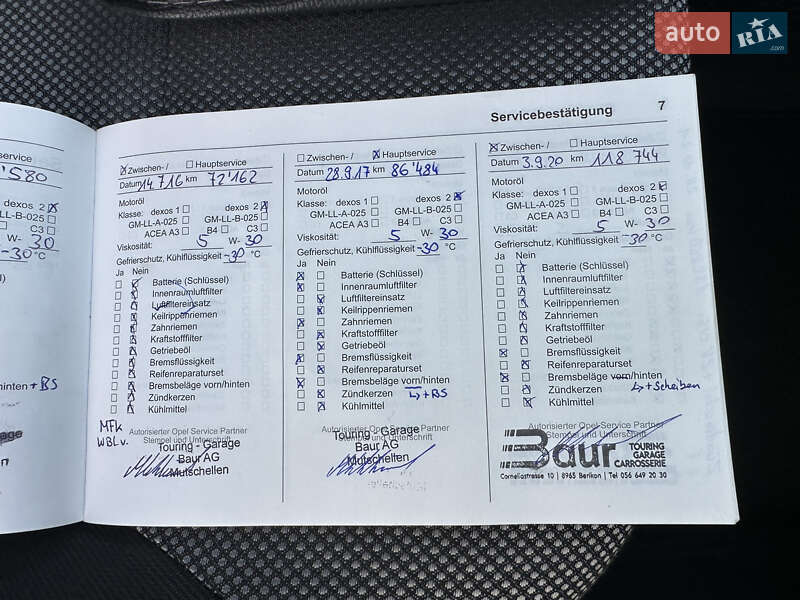 auto RIA .com
Servicebestätigung 7
service
'580
W- 30
-30 °C
hinten + BS
Zwischen- / Hauptservice
Datum 14.7.16 km 72'162
Motoröl
Klasse: dexos 1 dexos 2
GM-LL-A-025 GM-LL-B-025
ACEA A3 B4 C3
Viskosität: 5 W- 30
Gefrierschutz, Kühlflüssigkeit -30 °C
Ja Nein
Batterie (Schlüssel)
Innenraumluftfilter
Luftfiltereinsatz
Keilrippenriemen
Zahnriemen
Kraftstofffilter
Getriebeöl
Bremsflüssigkeit
Reifenreparaturset
Bremsbeläge vorn/hinten
Zündkerzen
Kühlmittel
MFK
WBL v.
Autorisierter Opel Service Partner
Stempel und Unterschrift
Touring - Garage
Baur AG
Mutschellen
Zwischen- / Hauptservice
Datum 28.9.17 km 86'484
Motoröl
Klasse: dexos 1 dexos 2
GM-LL-A-025 GM-LL-B-025
ACEA A3 B4 C3
Viskosität: 5 W- 30
Gefrierschutz, Kühlflüssigkeit -30 °C
Ja Nein
Batterie (Schlüssel)
Innenraumluftfilter
Luftfiltereinsatz
Keilrippenriemen
Zahnriemen
Kraftstofffilter
Getriebeöl
Bremsflüssigkeit
Reifenreparaturset
Bremsbeläge vorn/hinten
Zündkerzen + BS
Kühlmittel
Autorisierter Opel Service Partner
Stempel und Unterschrift
Touring - Garage
Baur AG
Mutschellen
Zwischen- / Hauptservice
Datum 3.9.20 km 118 744
Motoröl
Klasse: dexos 1 dexos 2
GM-LL-A-025 GM-LL-B-025
ACEA A3 B4 C3
Viskosität: 5 W- 30
Gefrierschutz, Kühlflüssigkeit -30 °C
Ja Nein
Batterie (Schlüssel)
Innenraumluftfilter
Luftfiltereinsatz
Keilrippenriemen
Zahnriemen
Kraftstofffilter
Getriebeöl
Bremsflüssigkeit
Reifenreparaturset
Bremsbeläge vorn/hinten
Zündkerzen + Scheiben
Kühlmittel
Autorisierter Opel Service Partner
Stempel und Unterschrift
Baur TOURING
GARAGE
CARROSSERIE
Corneliastrasse 10 | 8965 Berikon | Tel 056 649 20 30